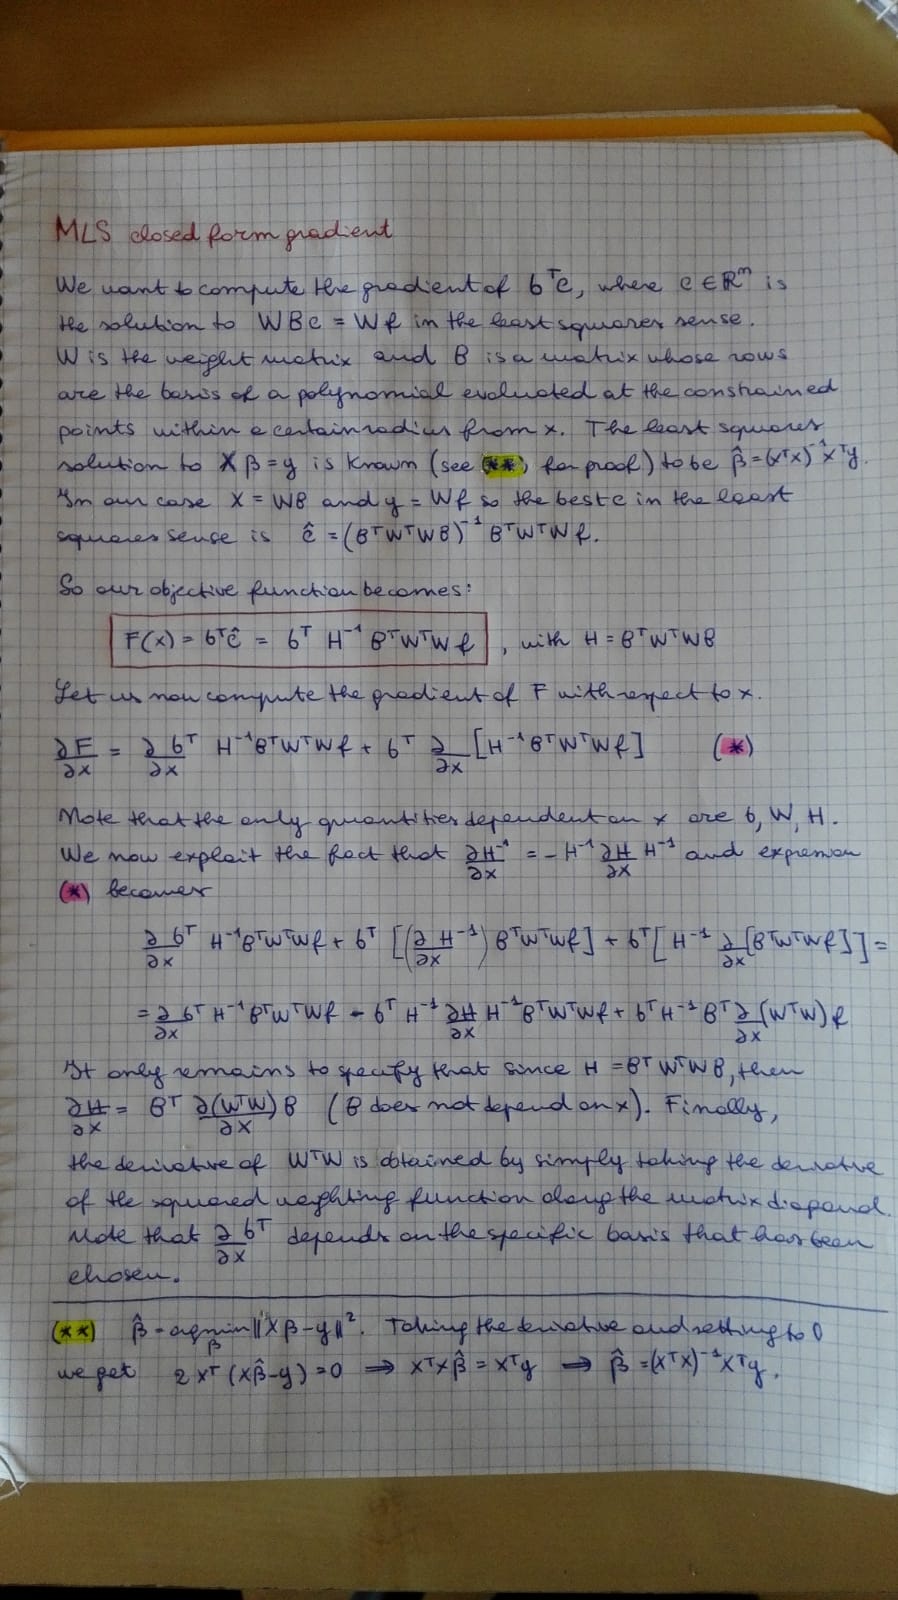 MLS closed form gradient
We want to compute the gradient of bᵀc, where c ∈ ℝᵐ is
the solution to WBc = Wf in the least squares sense.
W is the weight matrix and B is a matrix whose rows
are the basis of a polynomial evaluated at the constrained
points within a certain radius from x. The least squares
solution to Xβ = y is known (see (**) for proof) to be β̂ = (XᵀX)⁻¹Xᵀy.
In our case X = WB and y = Wf so the best c in the least
squares sense is ĉ = (BᵀWᵀWB)⁻¹BᵀWᵀWf.
So our objective function becomes:
F(x) = bᵀĉ = bᵀ H⁻¹ BᵀWᵀWf , with H = BᵀWᵀWB
Let us now compute the gradient of F with respect to x.
∂F/∂x = ∂bᵀ/∂x H⁻¹BᵀWᵀWf + bᵀ ∂/∂x [H⁻¹BᵀWᵀWf] (*)
Note that the only quantities dependent on x are b, W, H.
We now exploit the fact that ∂H⁻¹/∂x = -H⁻¹ ∂H/∂x H⁻¹ and expression
(*) becomes
∂bᵀ/∂x H⁻¹BᵀWᵀWf + bᵀ [(∂/∂x H⁻¹) BᵀWᵀWf] + bᵀ[H⁻¹ ∂/∂x [BᵀWᵀWf]] =
= ∂bᵀ/∂x H⁻¹BᵀWᵀWf - bᵀ H⁻¹ ∂H/∂x H⁻¹BᵀWᵀWf + bᵀH⁻¹ Bᵀ ∂/∂x (WᵀW) f
It only remains to specify that since H = BᵀWᵀWB, then
∂H/∂x = Bᵀ ∂(WᵀW)/∂x B (B does not depend on x). Finally,
the derivative of WᵀW is obtained by simply taking the derivative
of the squared weighting function along the matrix diagonal.
Note that ∂bᵀ/∂x depends on the specific basis that has been
chosen.
(**) β̂ = argmin_β ||Xβ - y||². Taking the derivative and setting to 0
we get 2Xᵀ(Xβ̂ - y) = 0 ⟹ XᵀXβ̂ = Xᵀy ⟹ β̂ = (XᵀX)⁻¹Xᵀy.